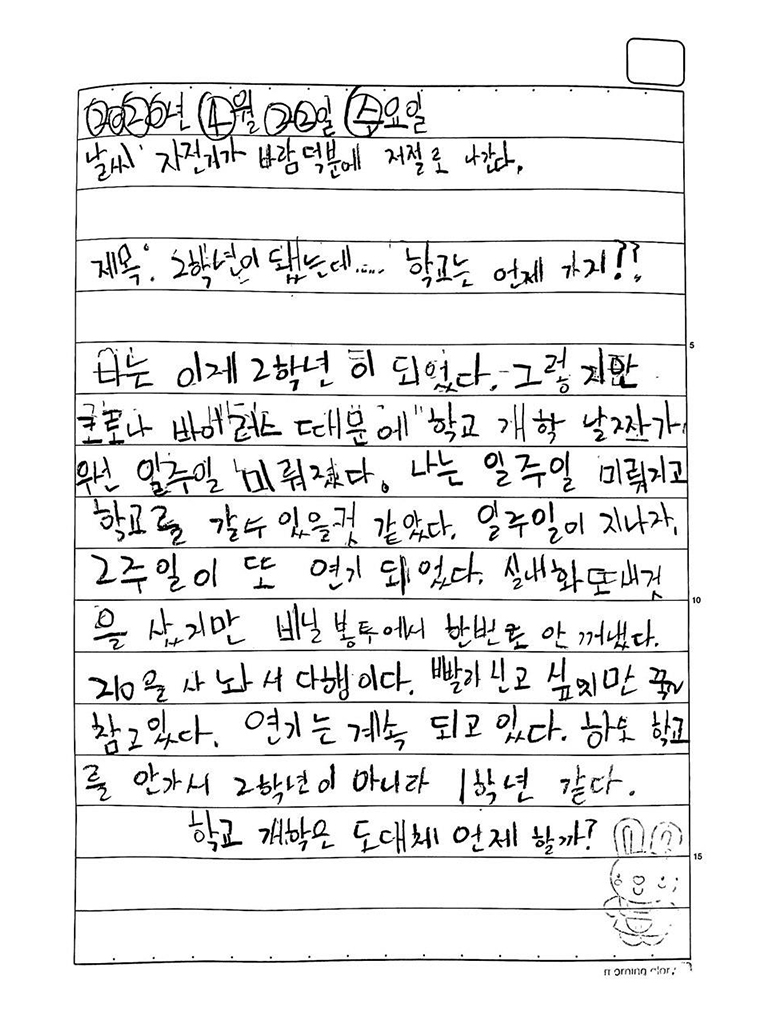 2020년 4월 22일 수요일
날씨: 자전거가 바람 덕분에 저절로 나간다.
제목: 2학년이 됐는데..... 학교는 언제 가지!?
나는 이제 2학년 이 되었다. 그렇지만
코로나 바이러스 때문에 학교 개학 날짜가
우선 일주일 미뤄졌다. 나는 일주일 미뤄지고
학교를 갈수 있을것 같았다. 일주일이 지나자,
2주일이 또 연기 돼었다. 실내화 또 새것
을 샀지만 비닐 봉투에서 한번도 안 꺼냈다.
210을 사 놔 서 다행이다. 빨리 신고 싶지만 꾹
참고있다. 연기는 계속 되고 있다. 하도 학교
를 안가서 2학년이 아니라 1학년 같다.
학교 개학은 도대체 언제 할까?
5
10
15
morning glory